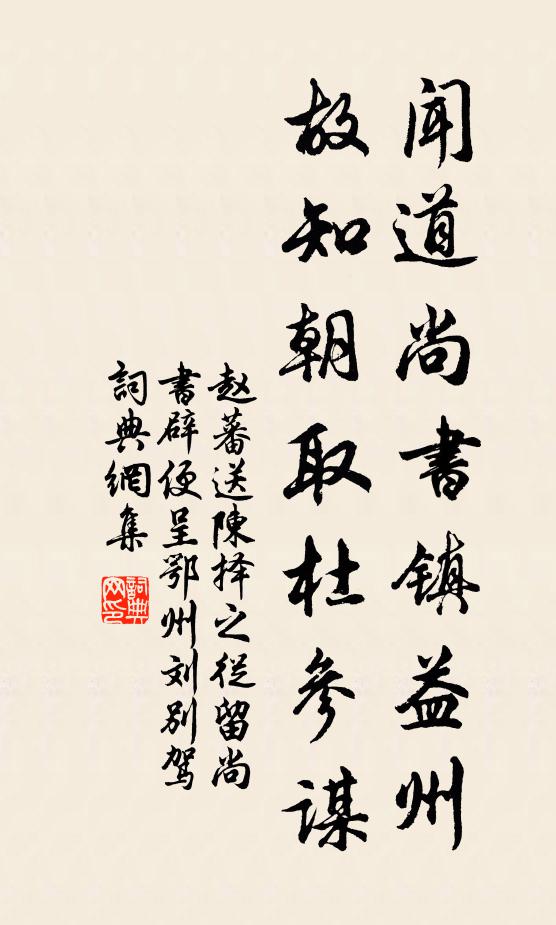 闻道尚書镇益州
故知朝取杜參謀
赵蕃送陳择之從留尚
書辟便呈鄂州刘别驾
詞典網集
詞典网印